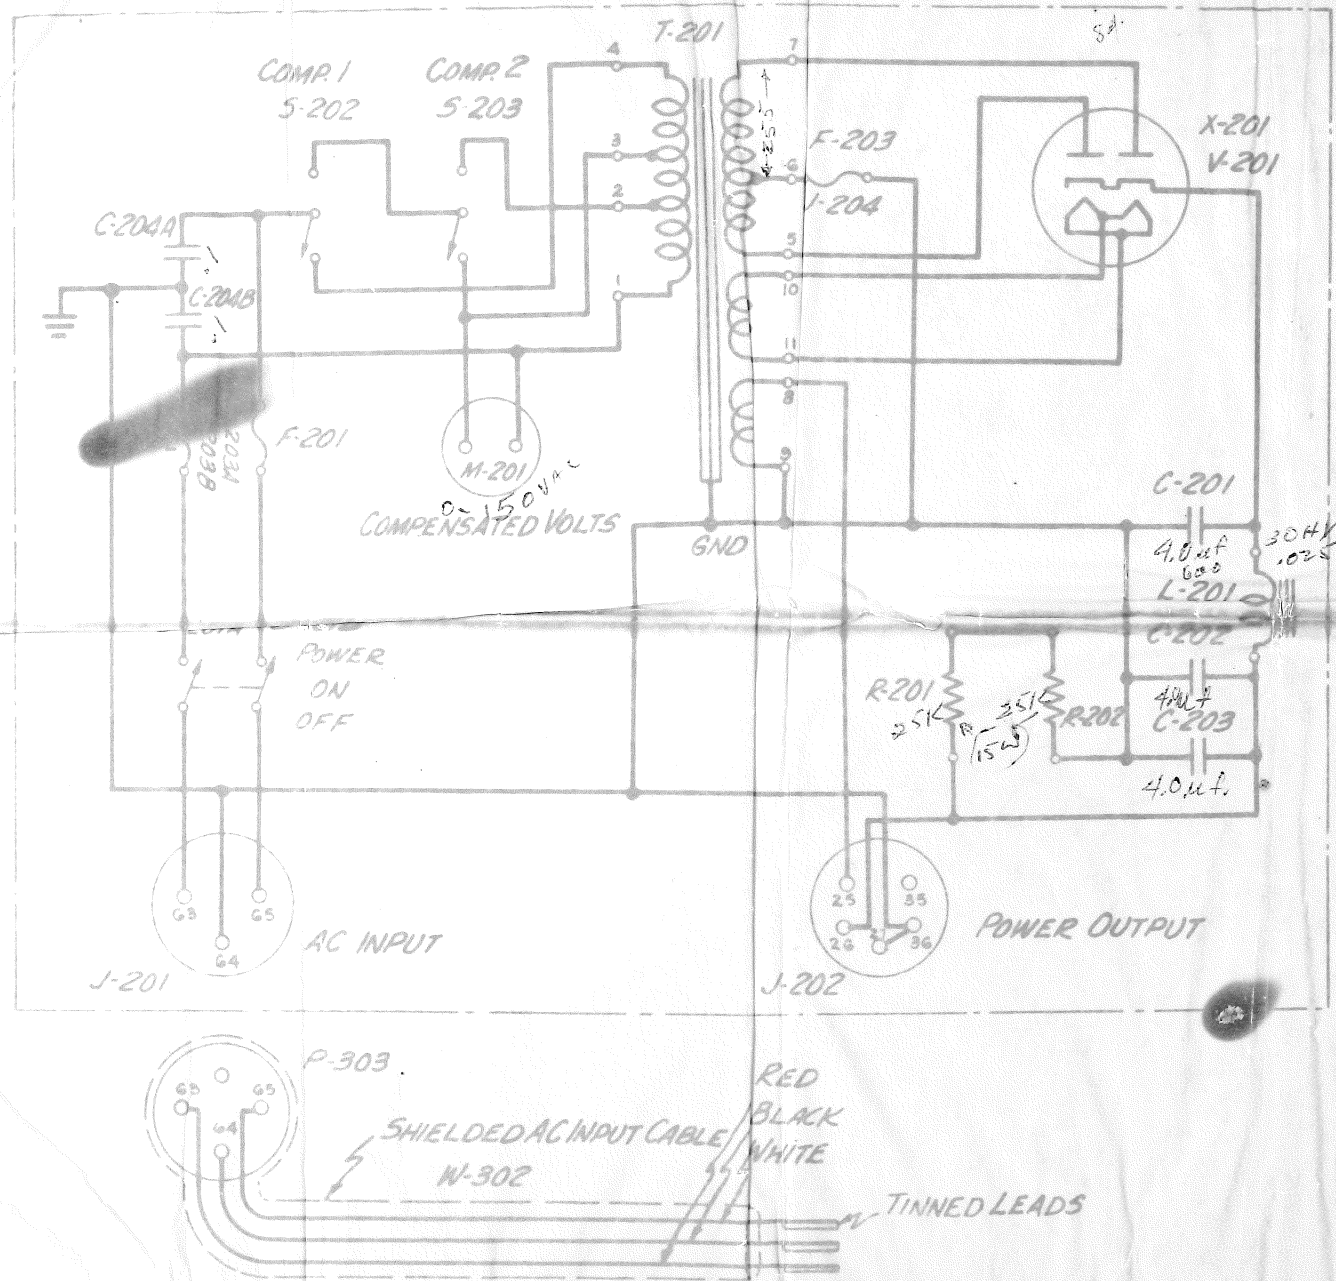 T-201
COMP. 1
S-202
COMP. 2
S-203
4
3
2
1
7
6
5
10
11
8
9
355
F-203
J-204
X-201
V-201
C-204A
.1
C-204B
.1
F-201
203A
203B
M-201
0-150 VAC
COMPENSATED VOLTS
GND
C-201
4.0 uf
600
30 HY
.025
L-201
C-202
4.0 uf
C-203
4.0 uf.
R-201
25K
25K
R-202
15W
POWER
ON
OFF
63
65
64
AC INPUT
J-201
25
35
26
36
POWER OUTPUT
J-202
P-303
63
65
64
SHIELDED AC INPUT CABLE
W-302
RED
BLACK
WHITE
TINNED LEADS